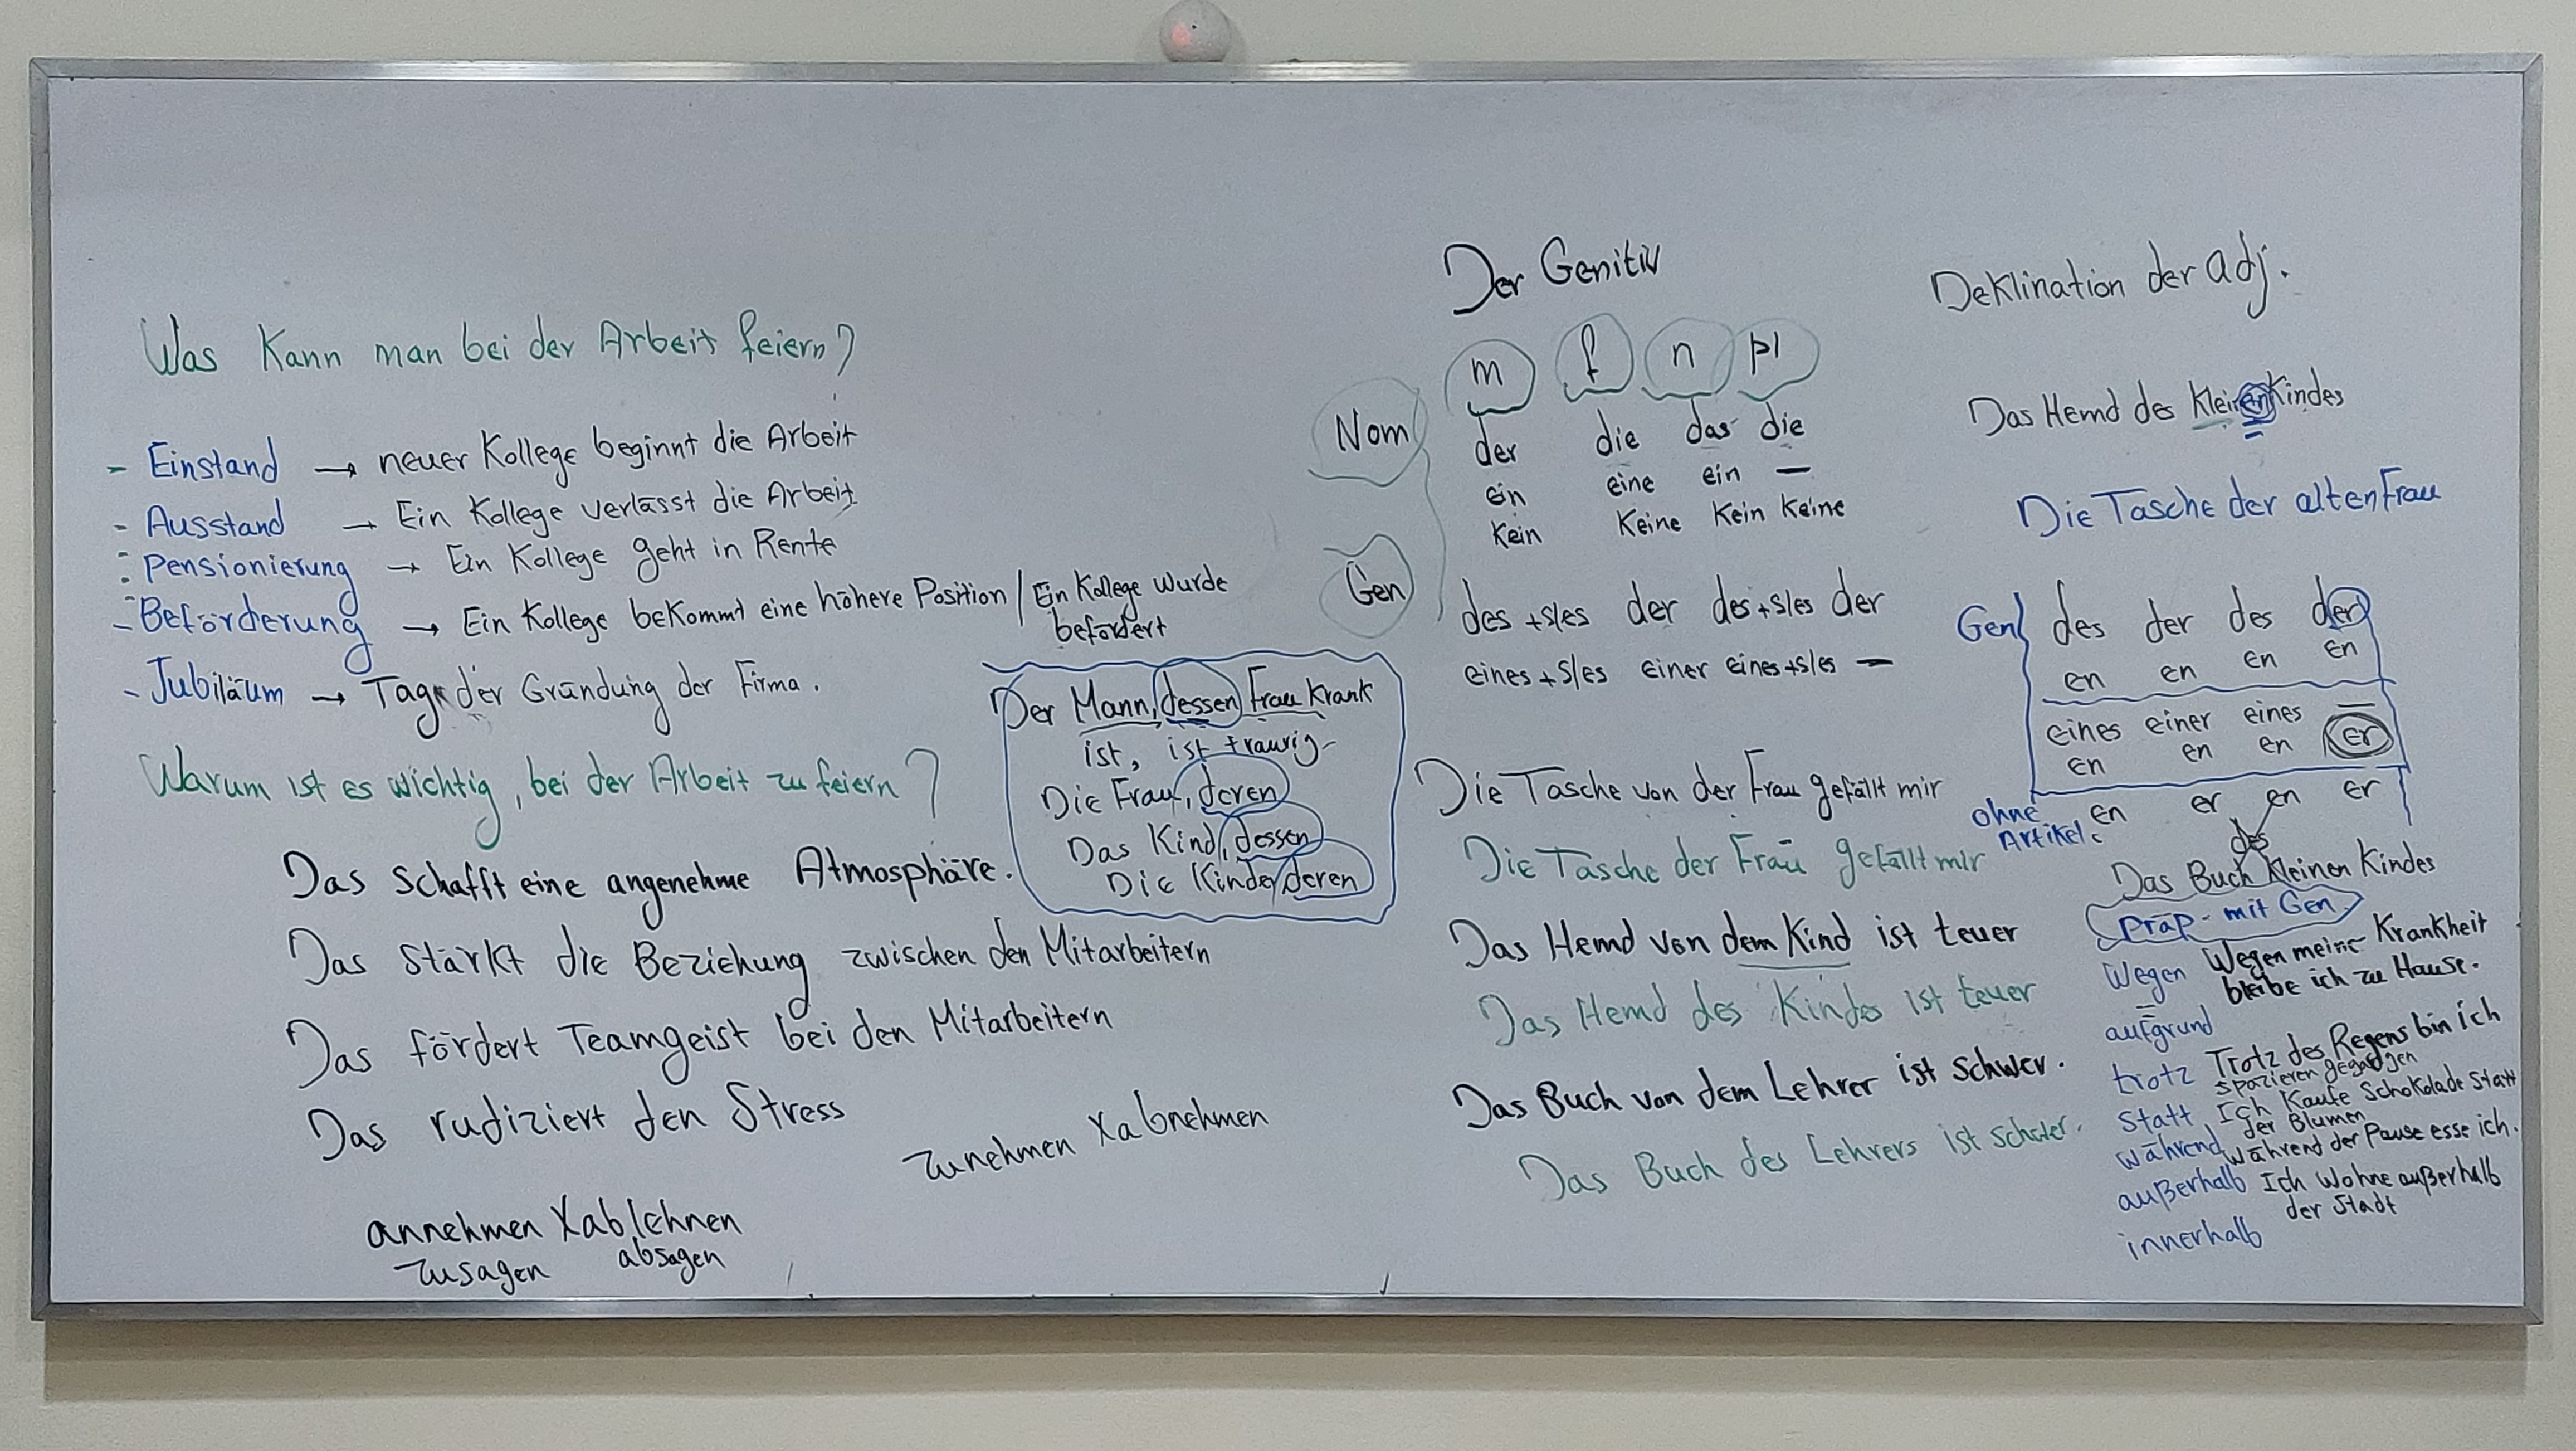 Was kann man bei der Arbeit feiern?
- Einstand → neuer Kollege beginnt die Arbeit
- Ausstand → Ein Kollege verlässt die Arbeit
- Pensionierung → Ein Kollege geht in Rente
- Beförderung → Ein Kollege bekommt eine höhere Position / Ein Kollege wurde
befördert
- Jubiläum → Tag der Gründung der Firma.
Warum ist es wichtig, bei der Arbeit zu feiern?
Das schafft eine angenehme Atmosphäre.
Das stärkt die Beziehung zwischen den Mitarbeitern
Das fördert Teamgeist bei den Mitarbeitern
Das rudiziert den Stress
zunehmen X abnehmen
annehmen X ablehnen
zusagen absagen
Der Mann, dessen Frau krank
ist, ist traurig
Die Frau, deren
Das Kind, dessen
Die Kinder, deren
Der Genitiv
m f n pl
Nom der die das die
ein eine ein —
kein keine kein keine
Gen des +s/es der des +s/es der
eines +s/es einer eines +s/es —
Die Tasche von der Frau gefällt mir
Die Tasche der Frau gefällt mir
Das Hemd von dem Kind ist teuer
Das Hemd des Kindes ist teuer
Das Buch von dem Lehrer ist schwer.
Das Buch des Lehrers ist schwer.
Deklination der adj.
Das Hemd des kleinen Kindes
Die Tasche der alten Frau
Gen des der des der
en en en en
eines einer eines —
en en en er
ohne Artikel: en er en er
des
Das Buch kleinen Kindes
Präp. mit Gen.
Wegen Wegen meine Krankheit
bleibe ich zu Hause.
=
aufgrund
trotz Trotz des Regens bin ich
spazieren gegangen
statt Ich kaufe Schokolade statt
der Blumen
während Während der Pause esse ich.
außerhalb Ich wohne außerhalb
der Stadt
innerhalb